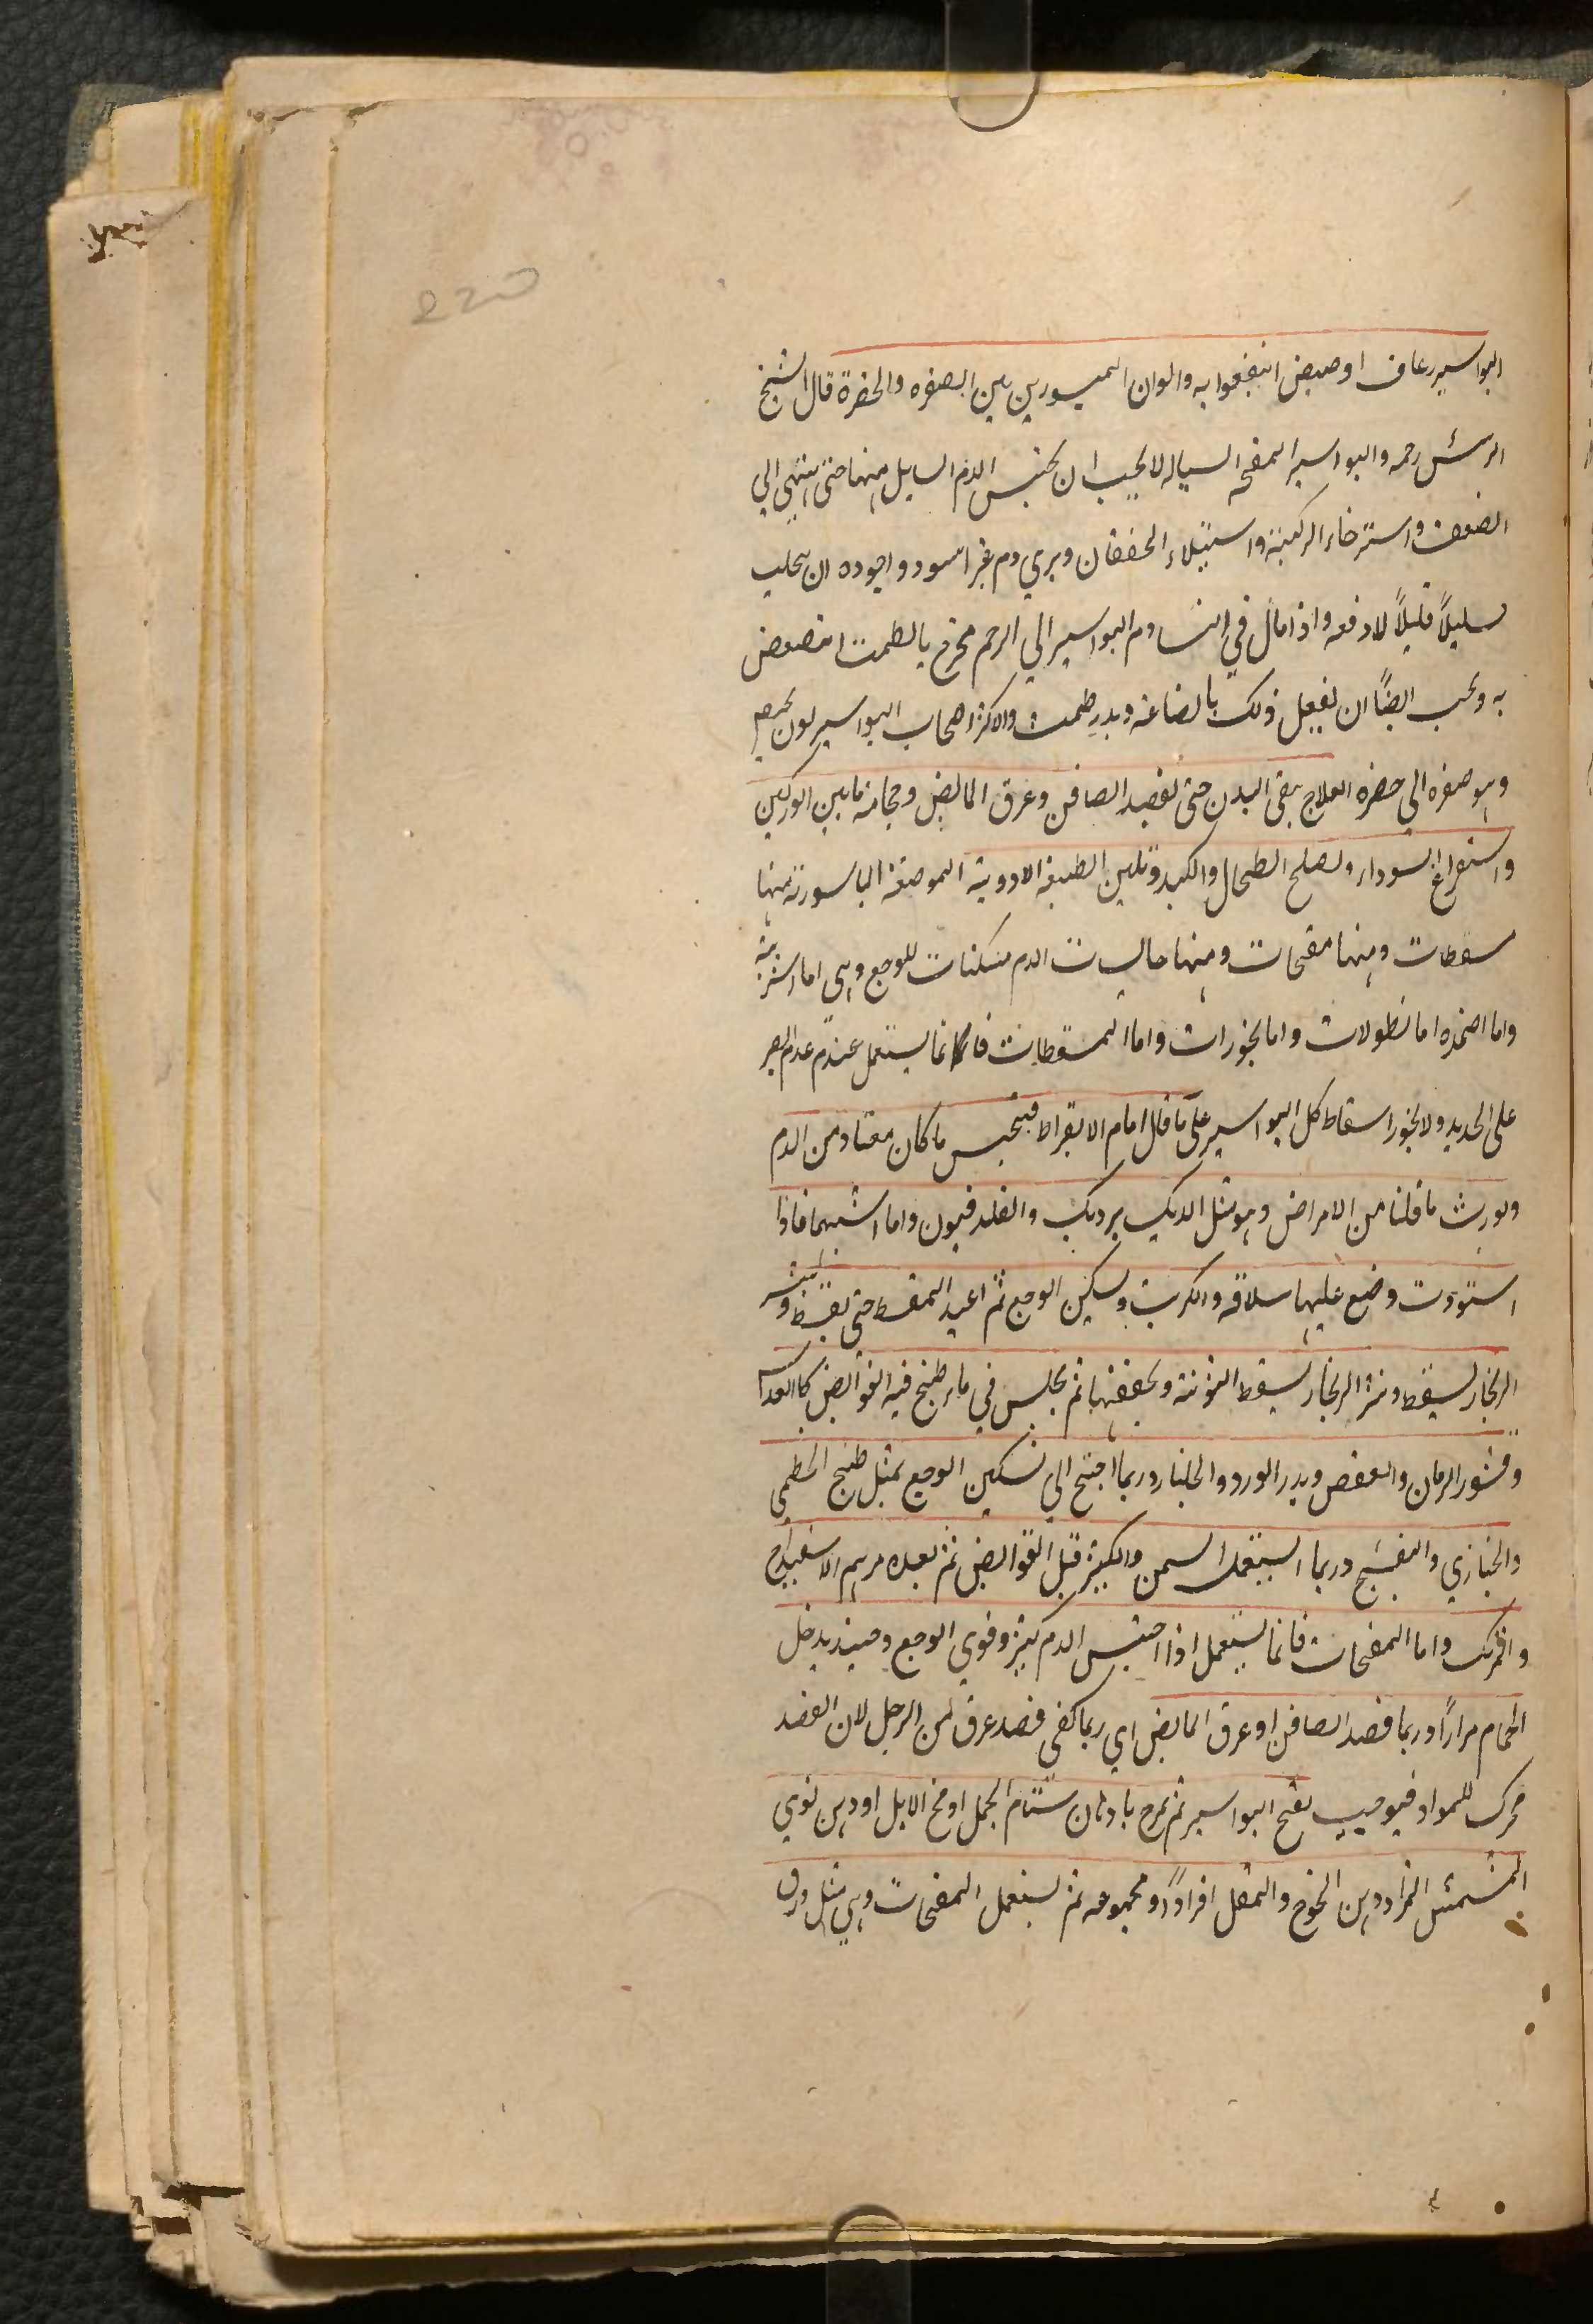 البواسير رعاف او حیض انتفعوا به والوان المبسورين بين الصفره والخضرة قال الشيخ
الرئس رحمه والبواسير المفتحه السياله لا يجب ان يحبس الدم السايل منها حتى ينتهي الي
الضعف واسترخاء الركبة واستيلاء الخفقان ويري دم غير اسود واجوده ان يحلب
قليلاً قليلاً لا دفعه واذا مال في النسا دم البواسير الي الرحم فخرج بالطمث انتفعن
به ويجب ايضًا ان يفعل ذلك بالصناعه ويدر طمث والاكثر اصحاب البواسير لون
وهو صفره الي خضره العلاج ينقى البدن حتى بفصد الصافن وعرق المابض وحجامة مابين الوركين
واستفراغ السوداء ويصلح الطحال والكبد وتلين الطبيعة الادوية الموضعة الباسورية منها
مسقطات ومنها مفتحات ومنها حابسات الدم مسكنات للوجع وهي اما اشربة
واما اضمده اما نطولات واما بخورات واما المسقطات فانما يستعمل عندم عدم الصبر
على الحديد ولا يجوز اسقاط كل البواسير على ما قال امام الابقراط فيحتبس ما كان معتاد من الدم
ويورث ما قلنا من الامراض وهو مثل الديك برديك والقلدفيون واما اشبهها فاذا
استودت وضع عليها سلاقه والكرنب وسكين الوجع ثم اعيد المسقط حتى يسقط وينثر
الزنجار ليسقط ونثر الزنجار يسقط التوتة ويجففها ثم يجلس في ماء طبخ فيه القوابض كالعدس
وقشور الرمان والعفص وبدر الورد والجلنار وربما احتيج الي تسكين الوجع بمثل طبخ الخطمي
والخبازي والبنفسج وربما استعمل السمن والكثير قبل القوابض ثم بعده مرهم الاسفيداج
والمرتك واما المفتحات فانما يستعمل اذا احتبس الدم كثير وقوي الوجع وحينئذ يدخل
الحمام مرارًا وربما فصد الصافن او عرق المابض اي ربما كفى فصد عرق من الرجل لان الفصد
محرك للمواد فيوجب بفتح البواسير ثم يمرخ بادهان سنام الجمل او مخ الابل او دهن نوي
المشمش المر او دهن الخوخ والمقل افرادًا او مجموعه ثم يستعمل المفتحات وهي مثل ورق